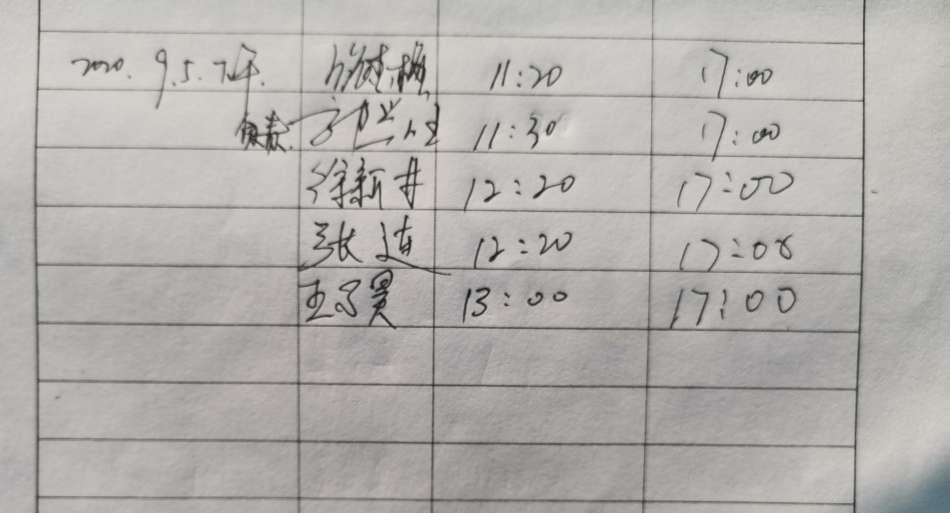 2020. 9.5. 下午 11:20 17:00
11:30 17:00
徐新井 12:20 17:00
张连 12:20 17:08
王子昊 13:00 17:00